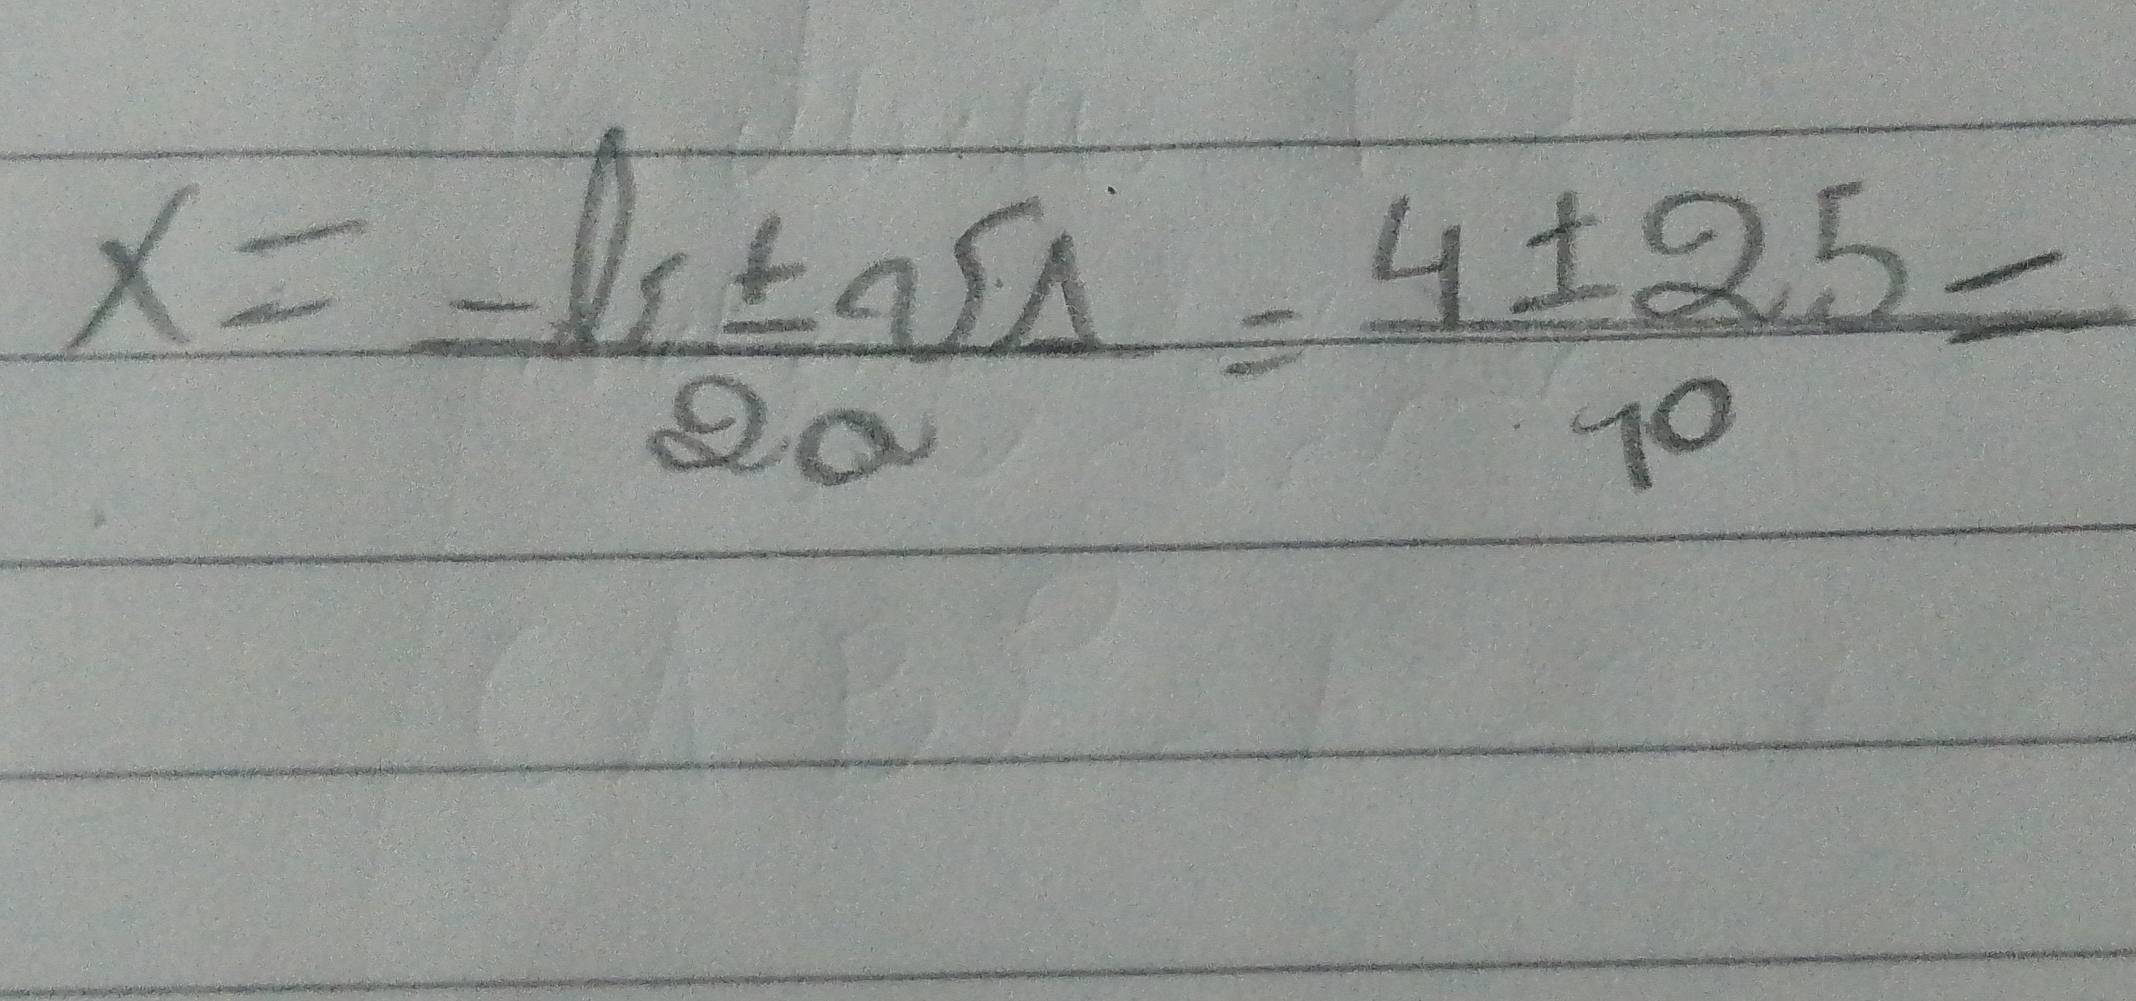 x = (-b ± √Δ) / 2a = (4 ± 25) / 10 =